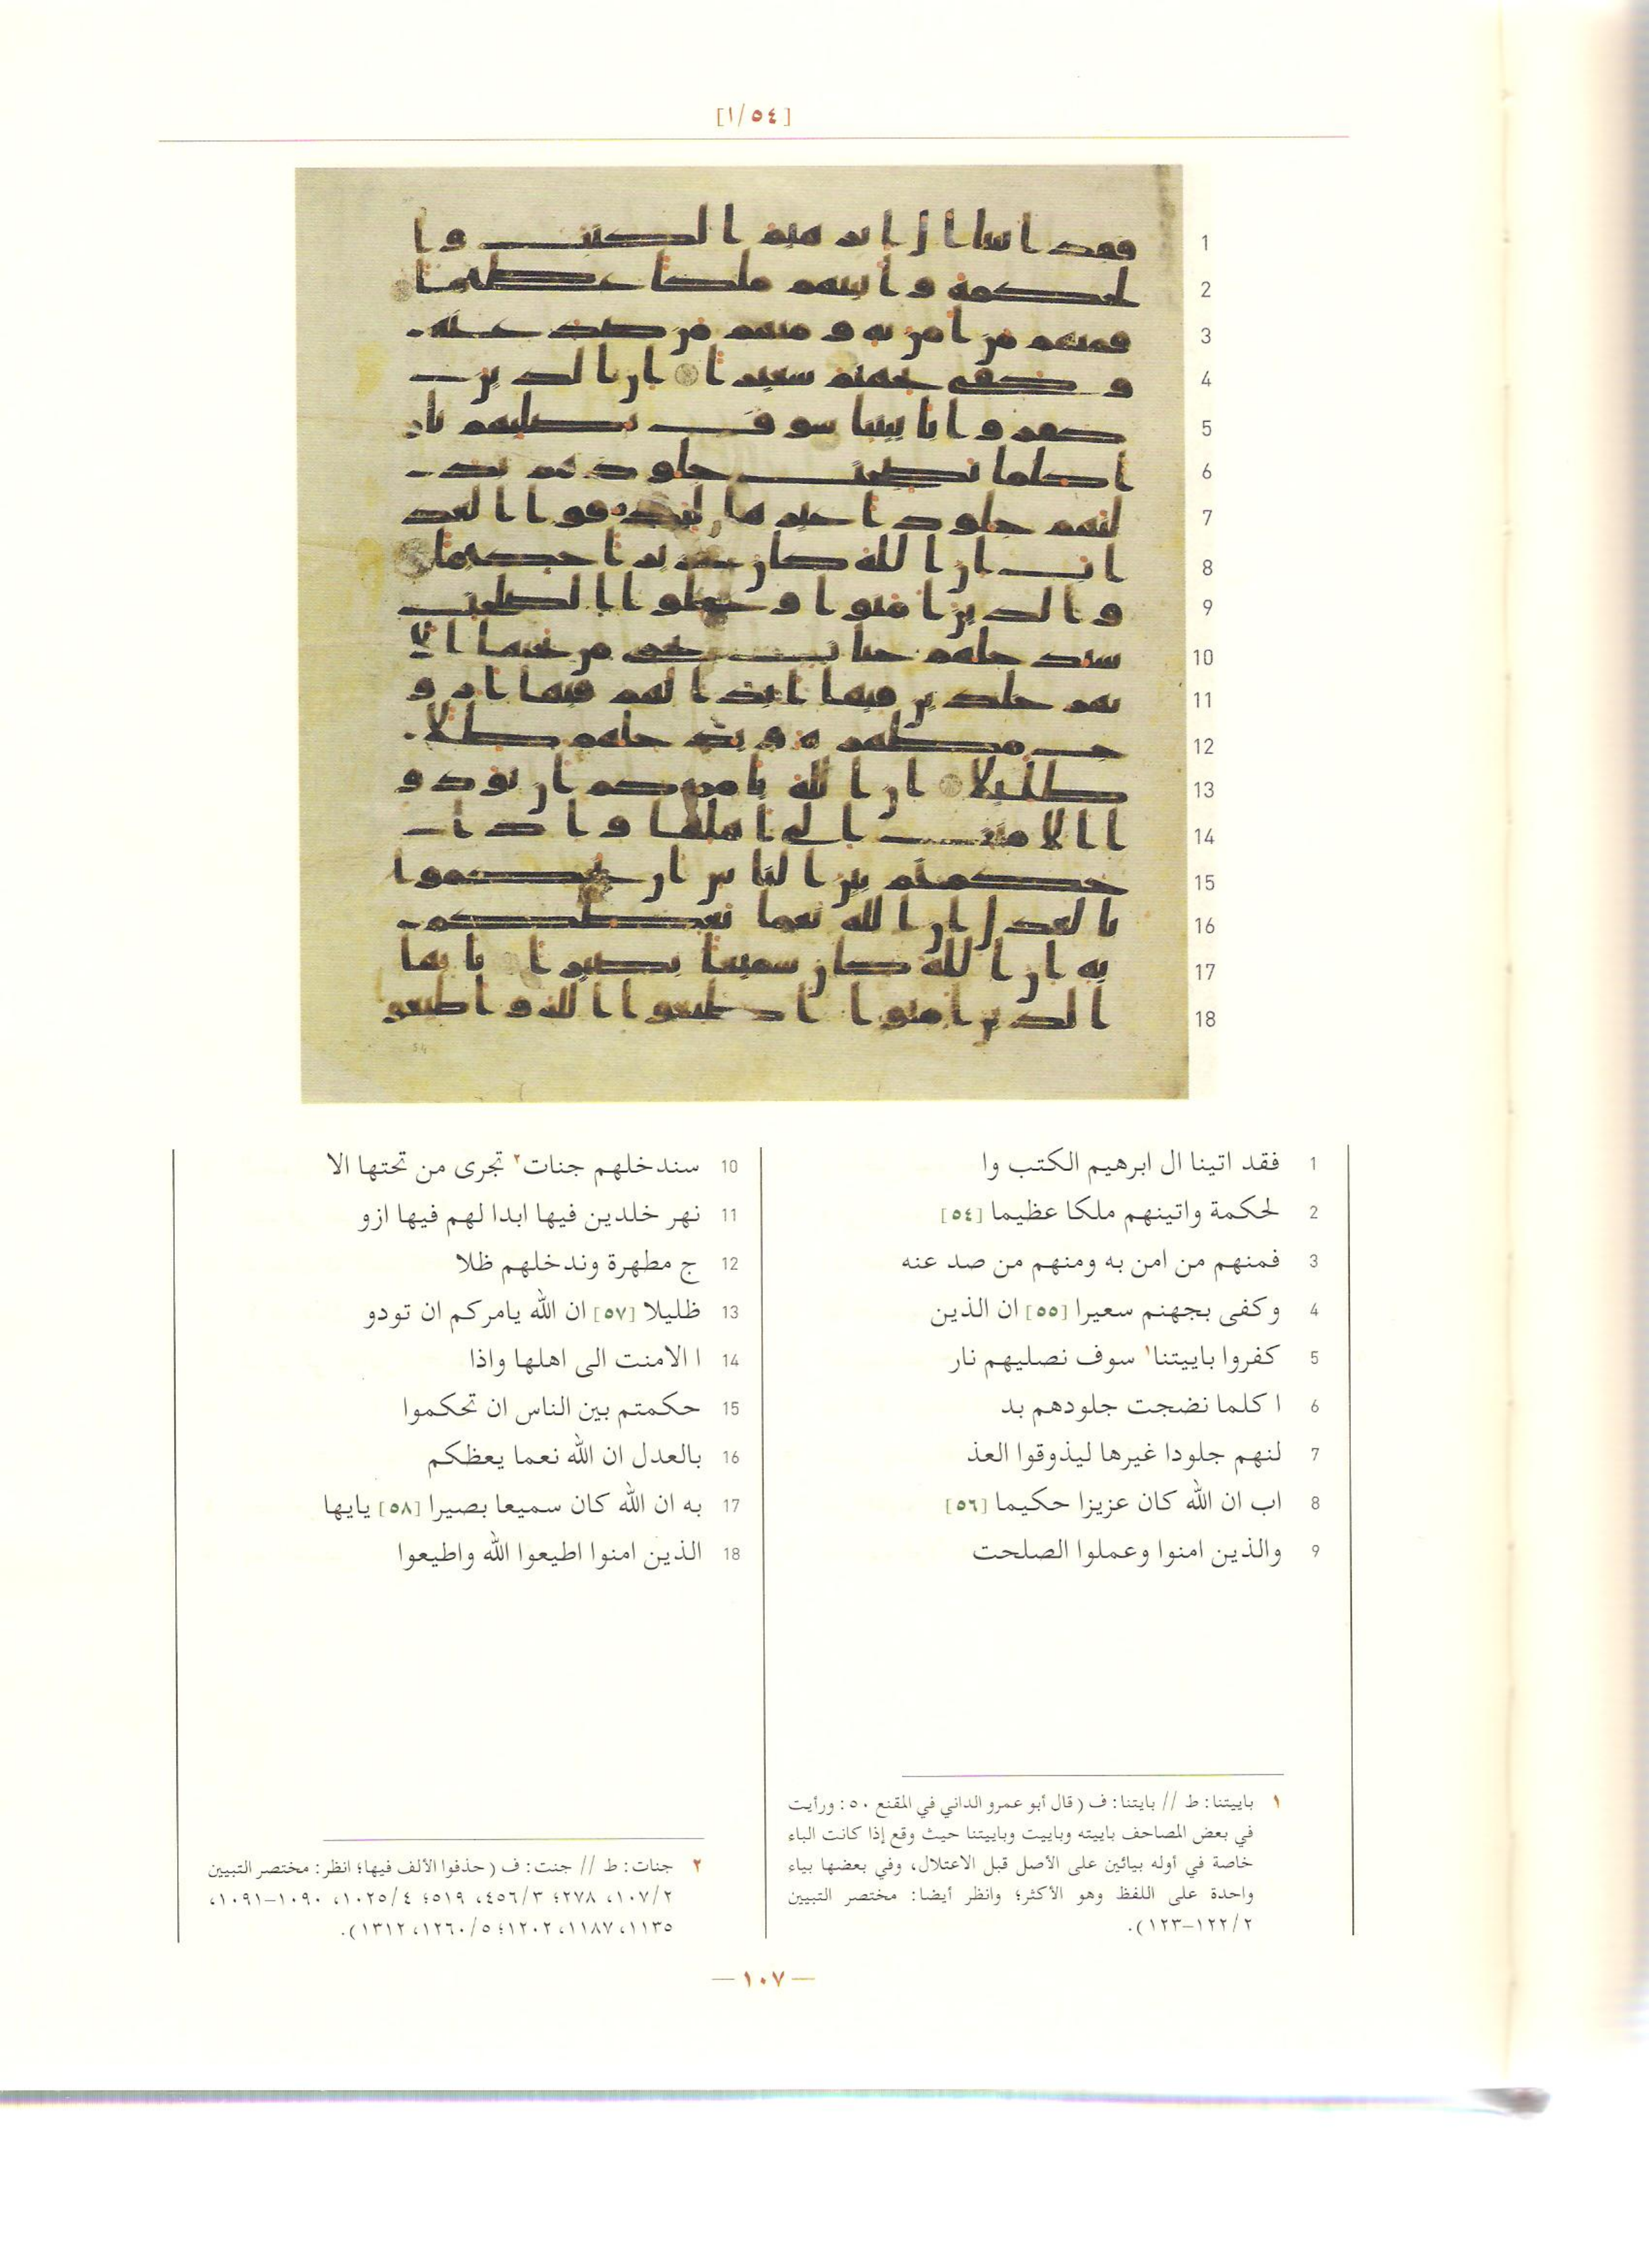 [١/٥٤]
1 فقد اتينا ال ابرهيم الكتب وا
2 لحكمة واتينهم ملكا عظيما [٥٤]
3 فمنهم من امن به ومنهم من صد عنه
4 وكفى بجهنم سعيرا [٥٥] ان الذين
5 كفروا باييتنا١ سوف نصليهم نار
6 ا كلما نضجت جلودهم بد
7 لنهم جلودا غيرها ليذوقوا العذ
8 اب ان الله كان عزيزا حكيما [٥٦]
9 والذين امنوا وعملوا الصلحت
10 سندخلهم جنات٢ تجرى من تحتها الا
11 نهر خلدين فيها ابدا لهم فيها ازو
12 ج مطهرة وندخلهم ظلا
13 ظليلا [٥٧] ان الله يامركم ان تودو
14 ا الامنت الى اهلها واذا
15 حكمتم بين الناس ان تحكموا
16 بالعدل ان الله نعما يعظكم
17 به ان الله كان سميعا بصيرا [٥٨] يايها
18 الذين امنوا اطيعوا الله واطيعوا
١ باييتنا: ط // بايتنا: ف (قال أبو عمرو الداني في المقنع ٥٠: ورأيت
في بعض المصاحف باييته وباييت وباييتنا حيث وقع إذا كانت الباء
خاصة في أوله بيائين على الأصل قبل الاعتلال، وفي بعضها بياء
واحدة على اللفظ وهو الأكثر؛ وانظر أيضا: مختصر التبيين
٢/١٢٢–١٢٣).
٢ جنات: ط // جنت: ف (حذفوا الألف فيها؛ انظر: مختصر التبيين
٢/١٠٧، ٢٧٨؛ ٣/٤٥٦، ٥١٩؛ ٤/١٠٢٥، ١٠٩٠–١٠٩١،
١١٣٥، ١١٨٧، ١٢٠٢؛ ٥/١٢٦٠، ١٣١٢).
— ١٠٧ —